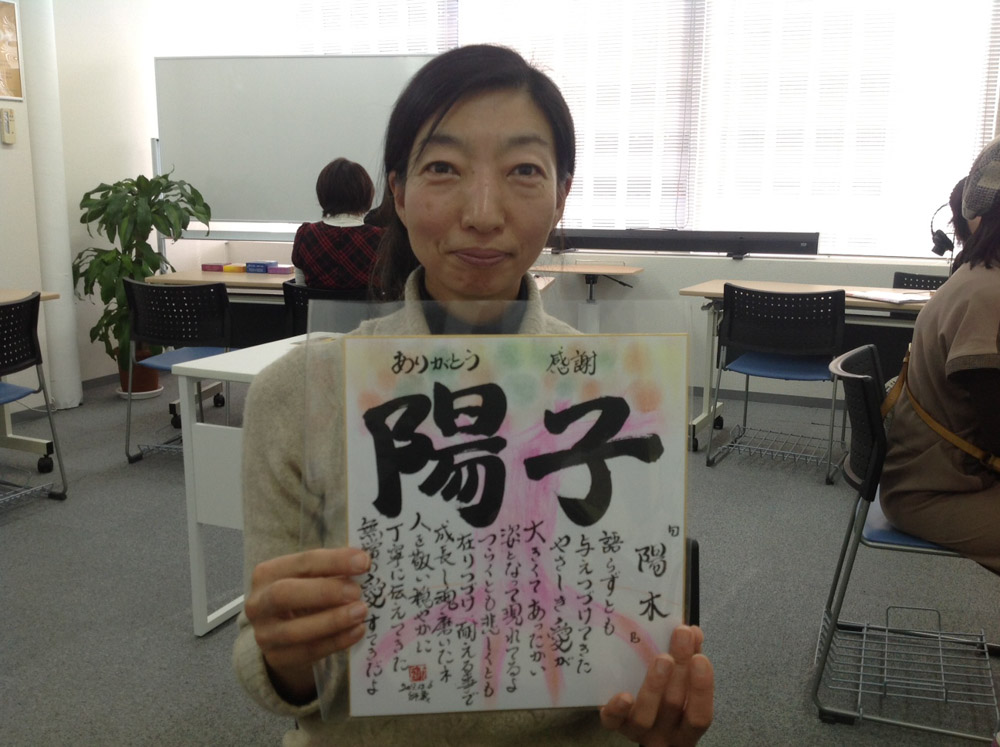 ありがとう 感謝
陽子
陽木
語らずとも
与えつづけてきた
やさしき愛が
大きくてあったかい
姿となって現れてるよ
つらくとも悲しくとも
在りつづけ耐える事で
成長し魂磨いた木
人を敬い穏やかに
丁寧に伝えてきた
無償の愛すてきだよ